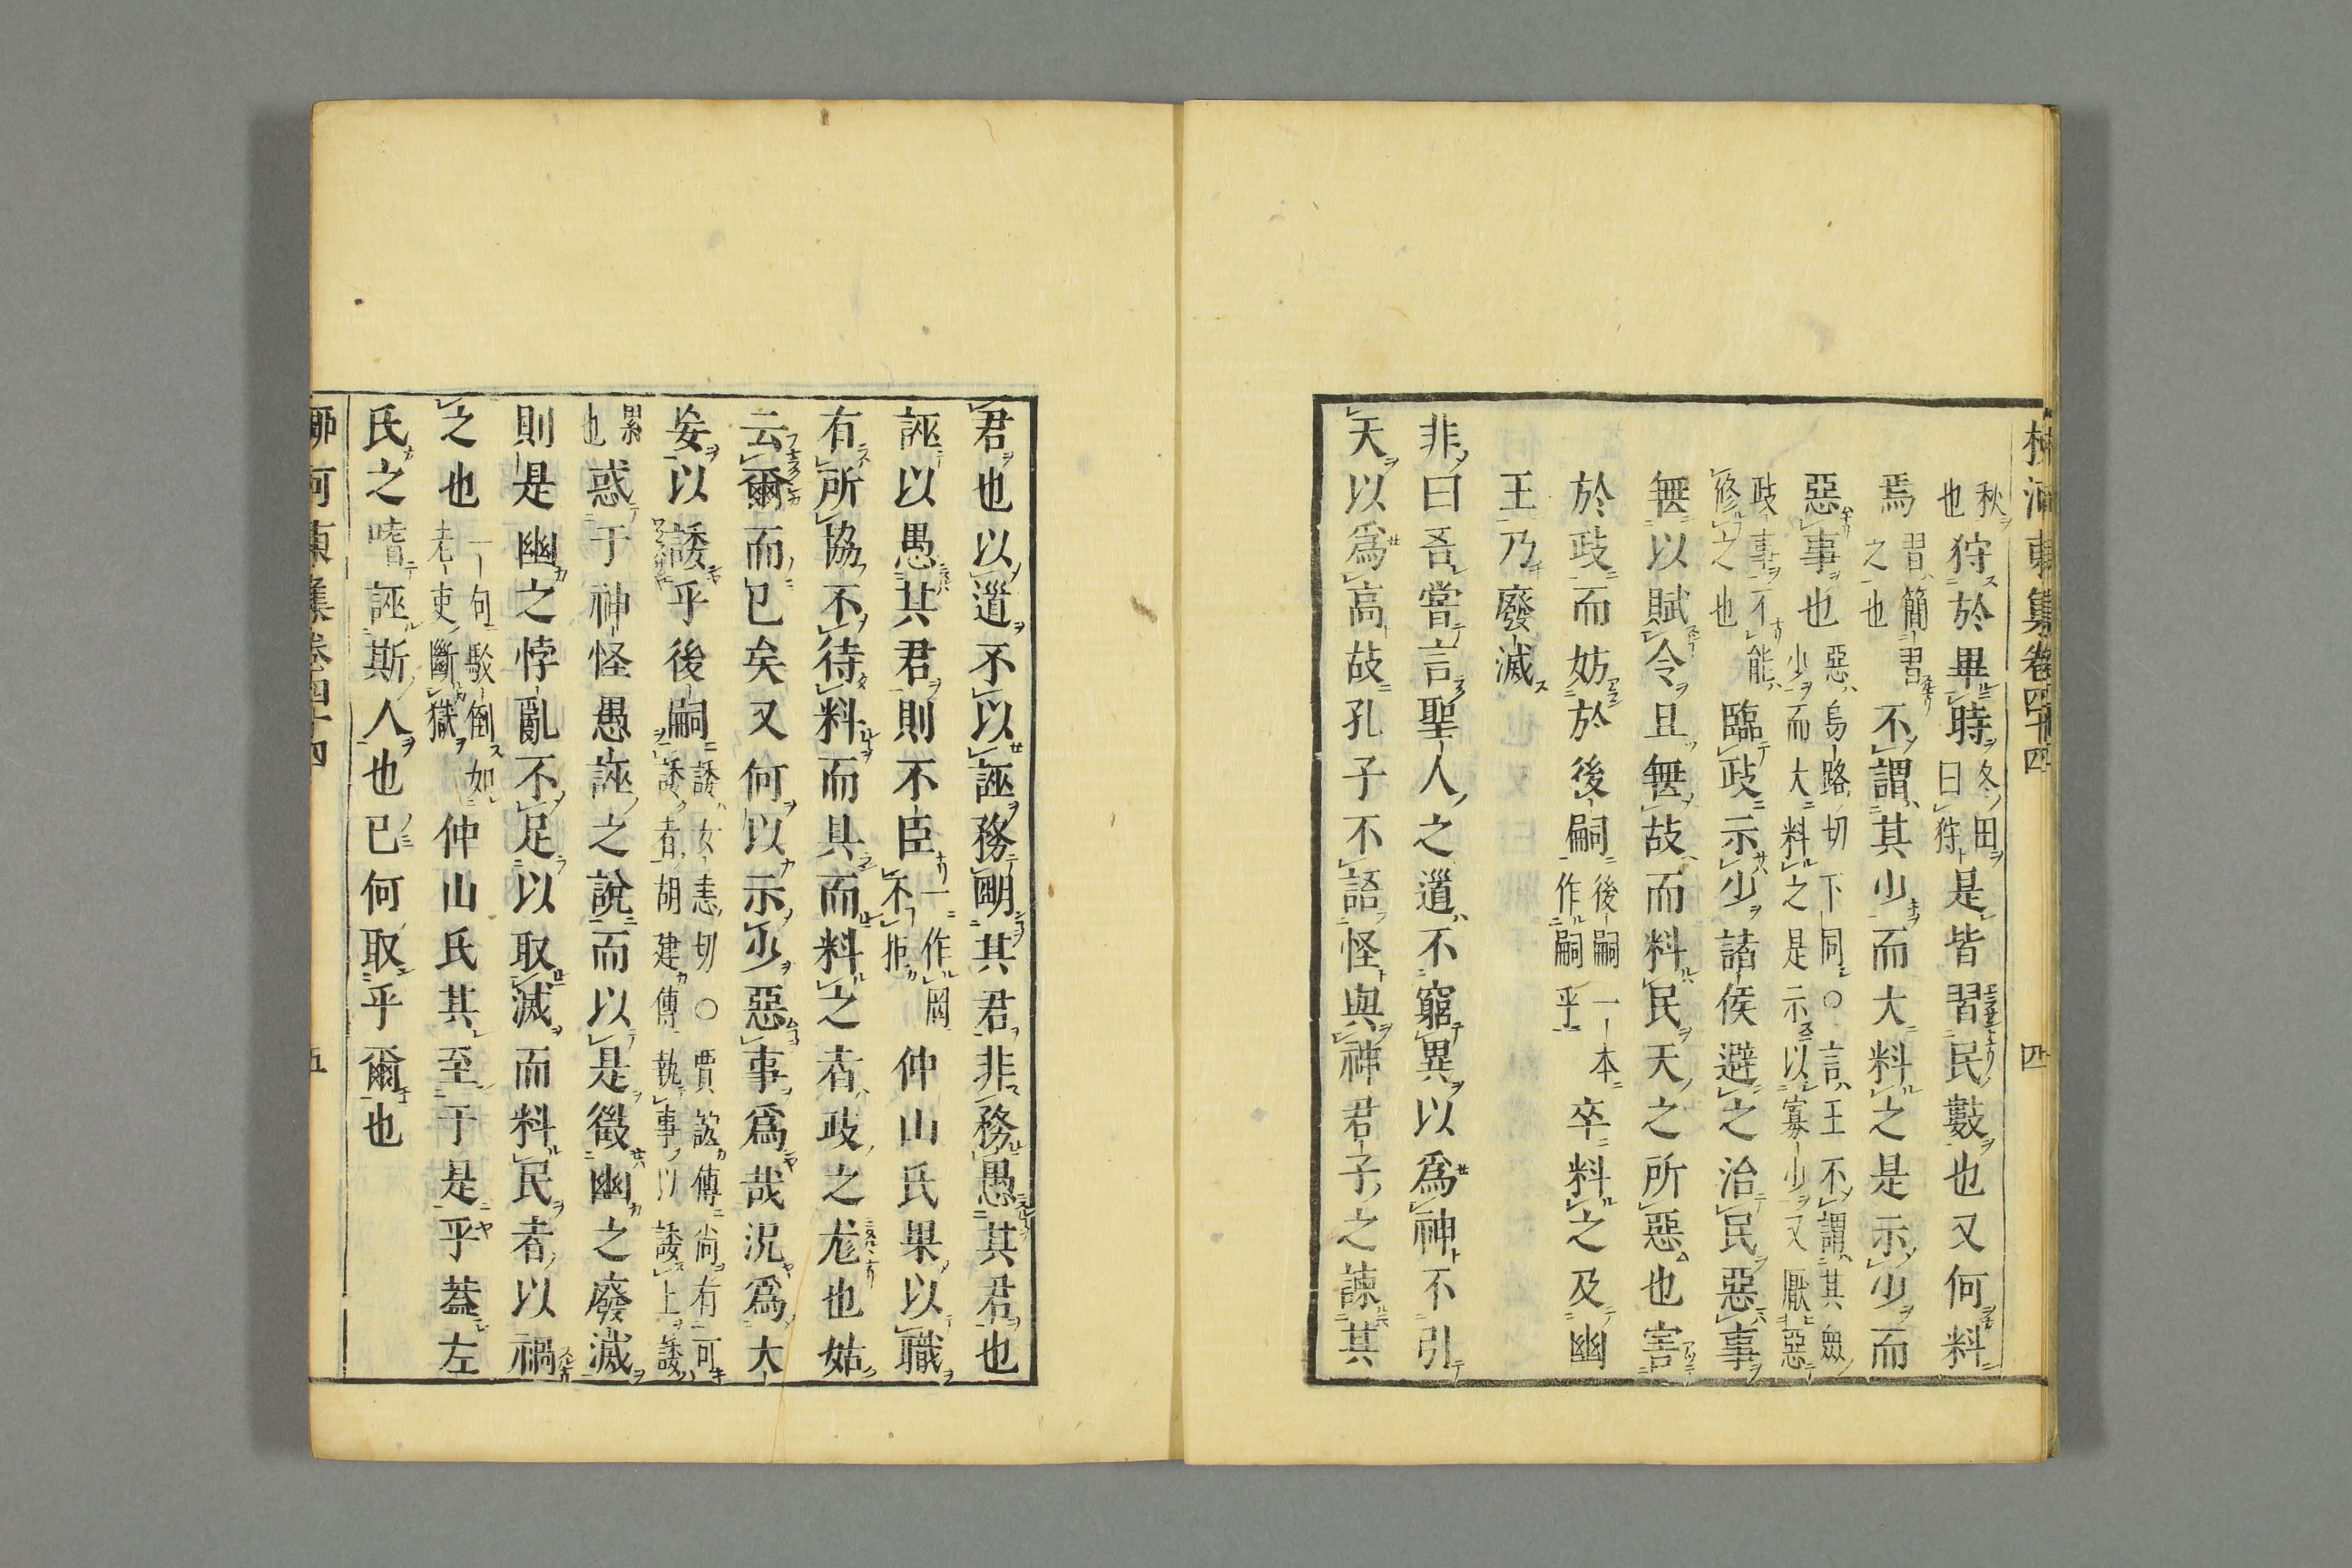 柳河東集卷四十四 四
秋也狩於畢時冬田曰狩是皆習民數也又何料
焉習簡習之也不謂其少而大料之是示少而
惡事也惡烏路切下同○言王不謂其僉少而大料之是示以寡少又厭惡
政事不能修之也臨政示少諸侯避之治民惡事
無以賦令且無故而料民天之所惡也害
於政而妨於後嗣後嗣一本作嗣乎卒料之及幽
王乃廢滅
非曰吾嘗言聖人之道不窮異以爲神不引
天以爲高故孔子不語怪與神君子之諫其
君也以道不以誣務明其君非務愚其君也
誣以愚其君則不臣一作罔不拒仲山氏果以職
有所協不待料而具而料之者政之尨也姑
云爾而已矣又何以示少惡事爲哉況爲大
妄以諉乎後嗣諉女恚切○賈誼傳尚有可諉者胡建傳執事以諉上諉
累也惑于神怪愚誣之說而以是徵幽之廢滅
則是幽之悖亂不足以取滅而料民者以禍
之也一句駁倒如老吏斷獄仲山氏其至于是乎蓋左
氏之嗜誣斯人也已何取乎爾也
柳河東集卷四十四 五